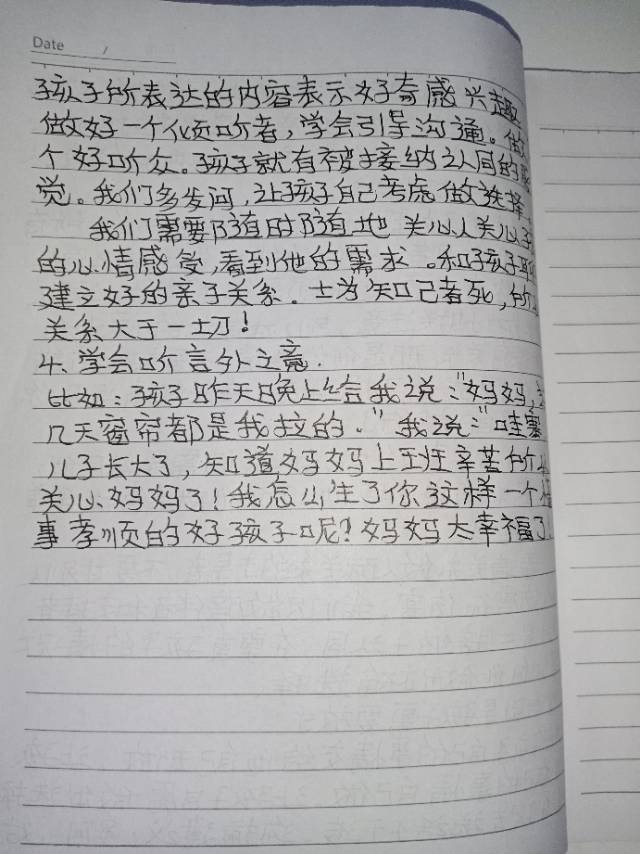 Date /
孩子所表达的内容表示好奇感兴趣
做好一个倾听者，学会引导沟通。做
个好听众。孩子就有被接纳认同的感
觉。我们多发问，让孩子自己考虑做选择
我们需要随时随地关心人关心孩
的心情感受，看到他的需求。和孩子
建立好的亲子关系。士为知己者死，所
关系大于一切！
4、学会听言外之意.
比如：孩子昨天晚上给我说："妈妈，
几天窗帘都是我拉的."我说："哇塞
儿子长大了，知道妈妈上班辛苦所
关心妈妈了！我怎么生了你这样一个
事孝顺的好孩子呢？妈妈太幸福了